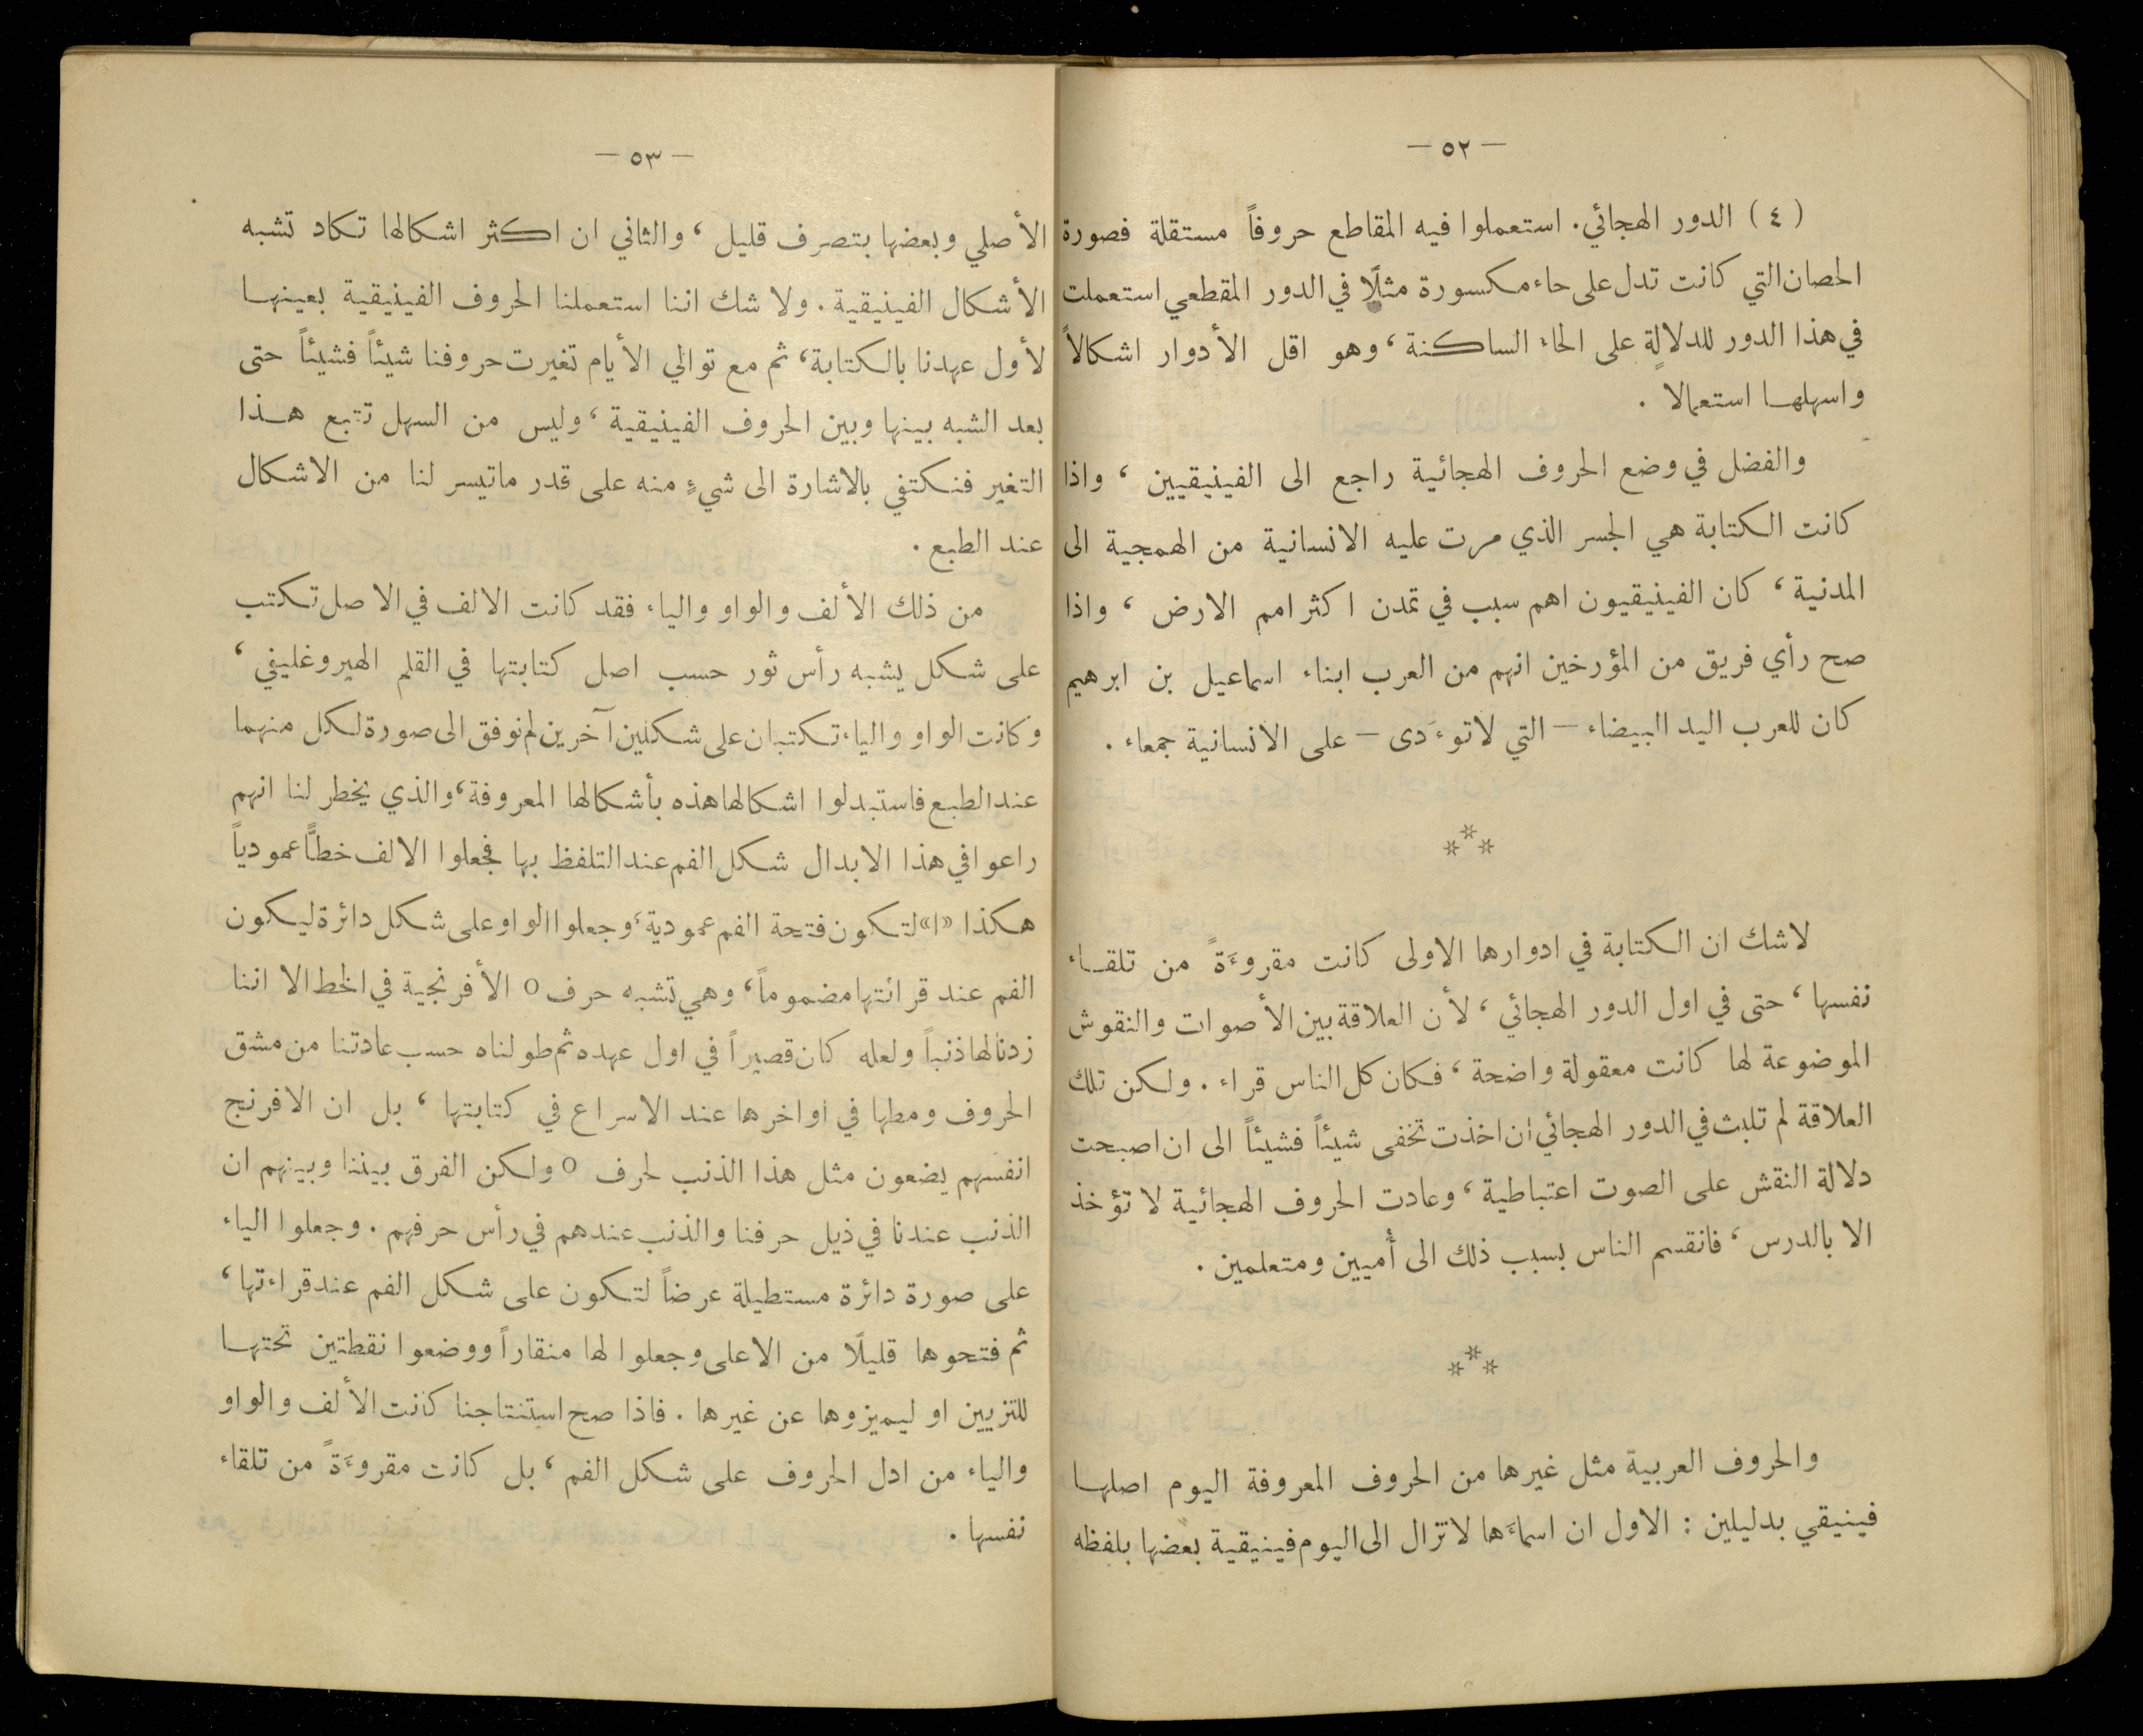 — ٥٢ —
( ٤ ) الدور الهجائي. استعملوا فيه المقاطع حروفاً مستقلة فصورة
الحصان التي كانت تدل على حاء مكسورة مثلًا في الدور المقطعي استعملت
في هذا الدور للدلالةِ على الحاء الساكنة، وهو اقل الأدوار اشكالاً
واسهلهـا استعمالا .
والفضل في وضع الحروف الهجائية راجع الى الفينيقيين ، واذا
كانت الكتابة هي الجسر الذي مرت عليه الانسانية من الهمجية الى
المدنية ، كان الفينيقيون اهم سبب في تمدن اكثر امم الارض ، واذا
صح رأي فريق من المؤرخين انهم من العرب ابناء اسماعيل بن ابرهيم
كان للعرب اليد البيضاء — التي لاتوءَدى — على الانسانية جمعاء .
***
لاشك ان الكتابة في ادوارها الاولى كانت مقروءَةً من تلقـاء
نفسها ، حتى في اول الدور الهجائي ، لأن العلاقة بين الأصوات والنقوش
الموضوعة لها كانت معقولة واضحة ، فكان كل الناس قراء . ولكن تلك
العلاقة لم تلبث في الدور الهجائي ان اخذت تخفى شيئاً فشيئاً الى ان اصبحت
دلالة النقش على الصوت اعتباطية ، وعادت الحروف الهجائية لا تؤخذ
الا بالدرس ، فانقسم الناس بسبب ذلك الى أميين ومتعلمين .
***
والحروف العربية مثل غيرها من الحروف المعروفة اليوم اصلهـا
فينيقي بدليلين : الاول ان اسماءَها لاتزال الى اليوم فينيقية بعضها بلفظه
— ٥٣ —
الأصلي وبعضها بتصرف قليل ، والثاني ان اكثر اشكالها تكاد تشبه
الأشكال الفينيقية . ولا شك اننا استعملنا الحروف الفينيقية بعينهـا
لأول عهدنا بالكتابة، ثم مع توالي الأيام تغيرت حروفنا شيئاً فشيئاً حتى
بعد الشبه بينها وبين الحروف الفينيقية ، وليس من السهل تتبع هـذا
التغير فنكتفي بالاشارة الى شيءٍ منه على قدر ماتيسر لنا من الاشكال
عند الطبع .
من ذلك الألف والواو والياء فقد كانت الالف في الاصل تكتب
على شكل يشبه رأس ثور حسب اصل كتابتها في القلم الهيروغليفي ،
وكانت الواو والياء تكتبان على شكلين آخرين لم نوفق الى صورة لكل منهما
عند الطبع فاستبدلوا اشكالها هذه بأشكالها المعروفة، والذي يخطر لنا انهم
راعوا في هذا الابدال شكل الفم عند التلفظ بها فجعلوا الالف خطًّا عمودياً
هكذا «ا» لتكون فتحة الفم عمودية، وجعلوا الواو على شكل دائرة ليكون
الفم عند قرائتها مضموماً ، وهي تشبه حرف o الأفرنجية في الخط الا اننا
زدنا لها ذنباً ولعله كان قصيراً في اول عهده ثم طولناه حسب عادتنا من مشق
الحروف ومطها في اواخرها عند الاسراع في كتابتها ، بل ان الافرنج
انفسهم يضعون مثل هذا الذنب لحرف o ولكن الفرق بيننا وبينهم ان
الذنب عندنا في ذيل حرفنا والذنب عندهم في رأس حرفهم . وجعلوا الياء
على صورة دائرة مستطيلة عرضاً لتكون على شكل الفم عند قراءتها ،
ثم فتحوها قليلًا من الاعلى وجعلوا لها منقاراً ووضعوا نقطتين تحتهـا
للتزيين او ليميزوها عن غيرها . فاذا صح استنتاجنا كانت الألف والواو
والياء من ادل الحروف على شكل الفم ، بل كانت مقروءَةً من تلقاء
نفسها .